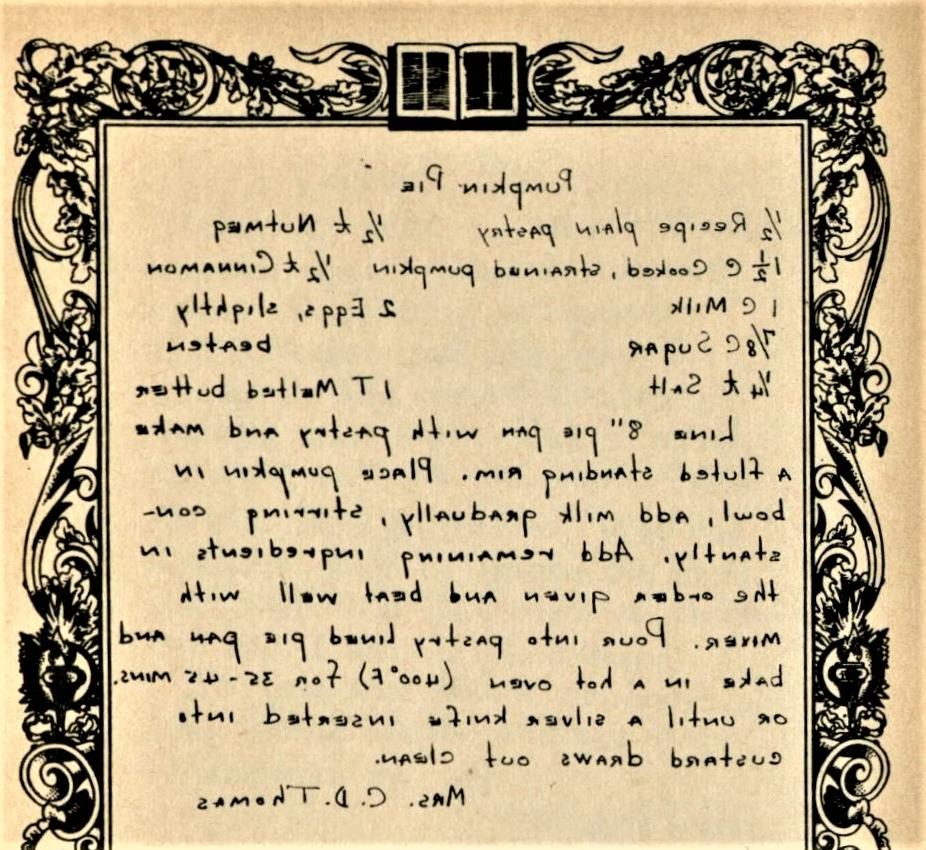 Pumpkin Pie
½ Recipe plain pastry ½ t Nutmeg
1 ½ C Cooked, strained pumpkin ½ t Cinnamon
1 C Milk 2 Eggs, slightly
7/8 C Sugar beaten
¼ t Salt 1 T Melted butter
Line 8" pie pan with pastry and make
a fluted standing rim. Place pumpkin in
bowl, add milk gradually, stirring con-
stantly. Add remaining ingredients in
the order given and beat well with
mixer. Pour into pastry lined pie pan and
bake in a hot oven (400°F) for 35-45 mins.
or until a silver knife inserted into
custard draws out clean.
Mrs. C. D. Thomas